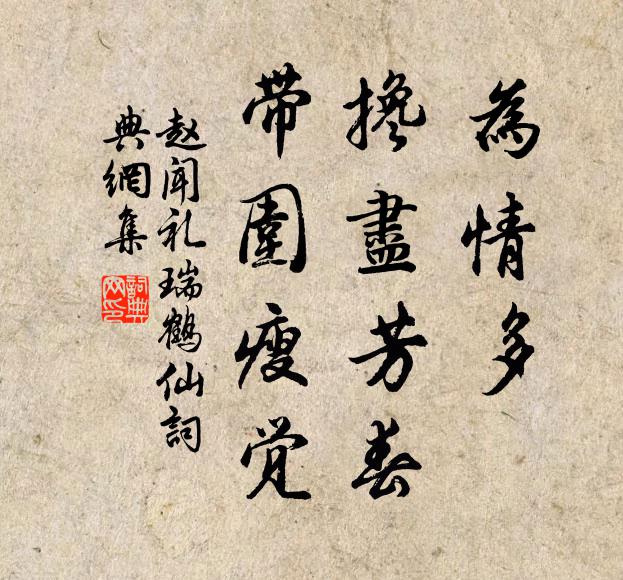 為情多
搀盡芳春
帶圍瘦觉
赵闻礼瑞鶴仙詞
典網集
詞典
网印